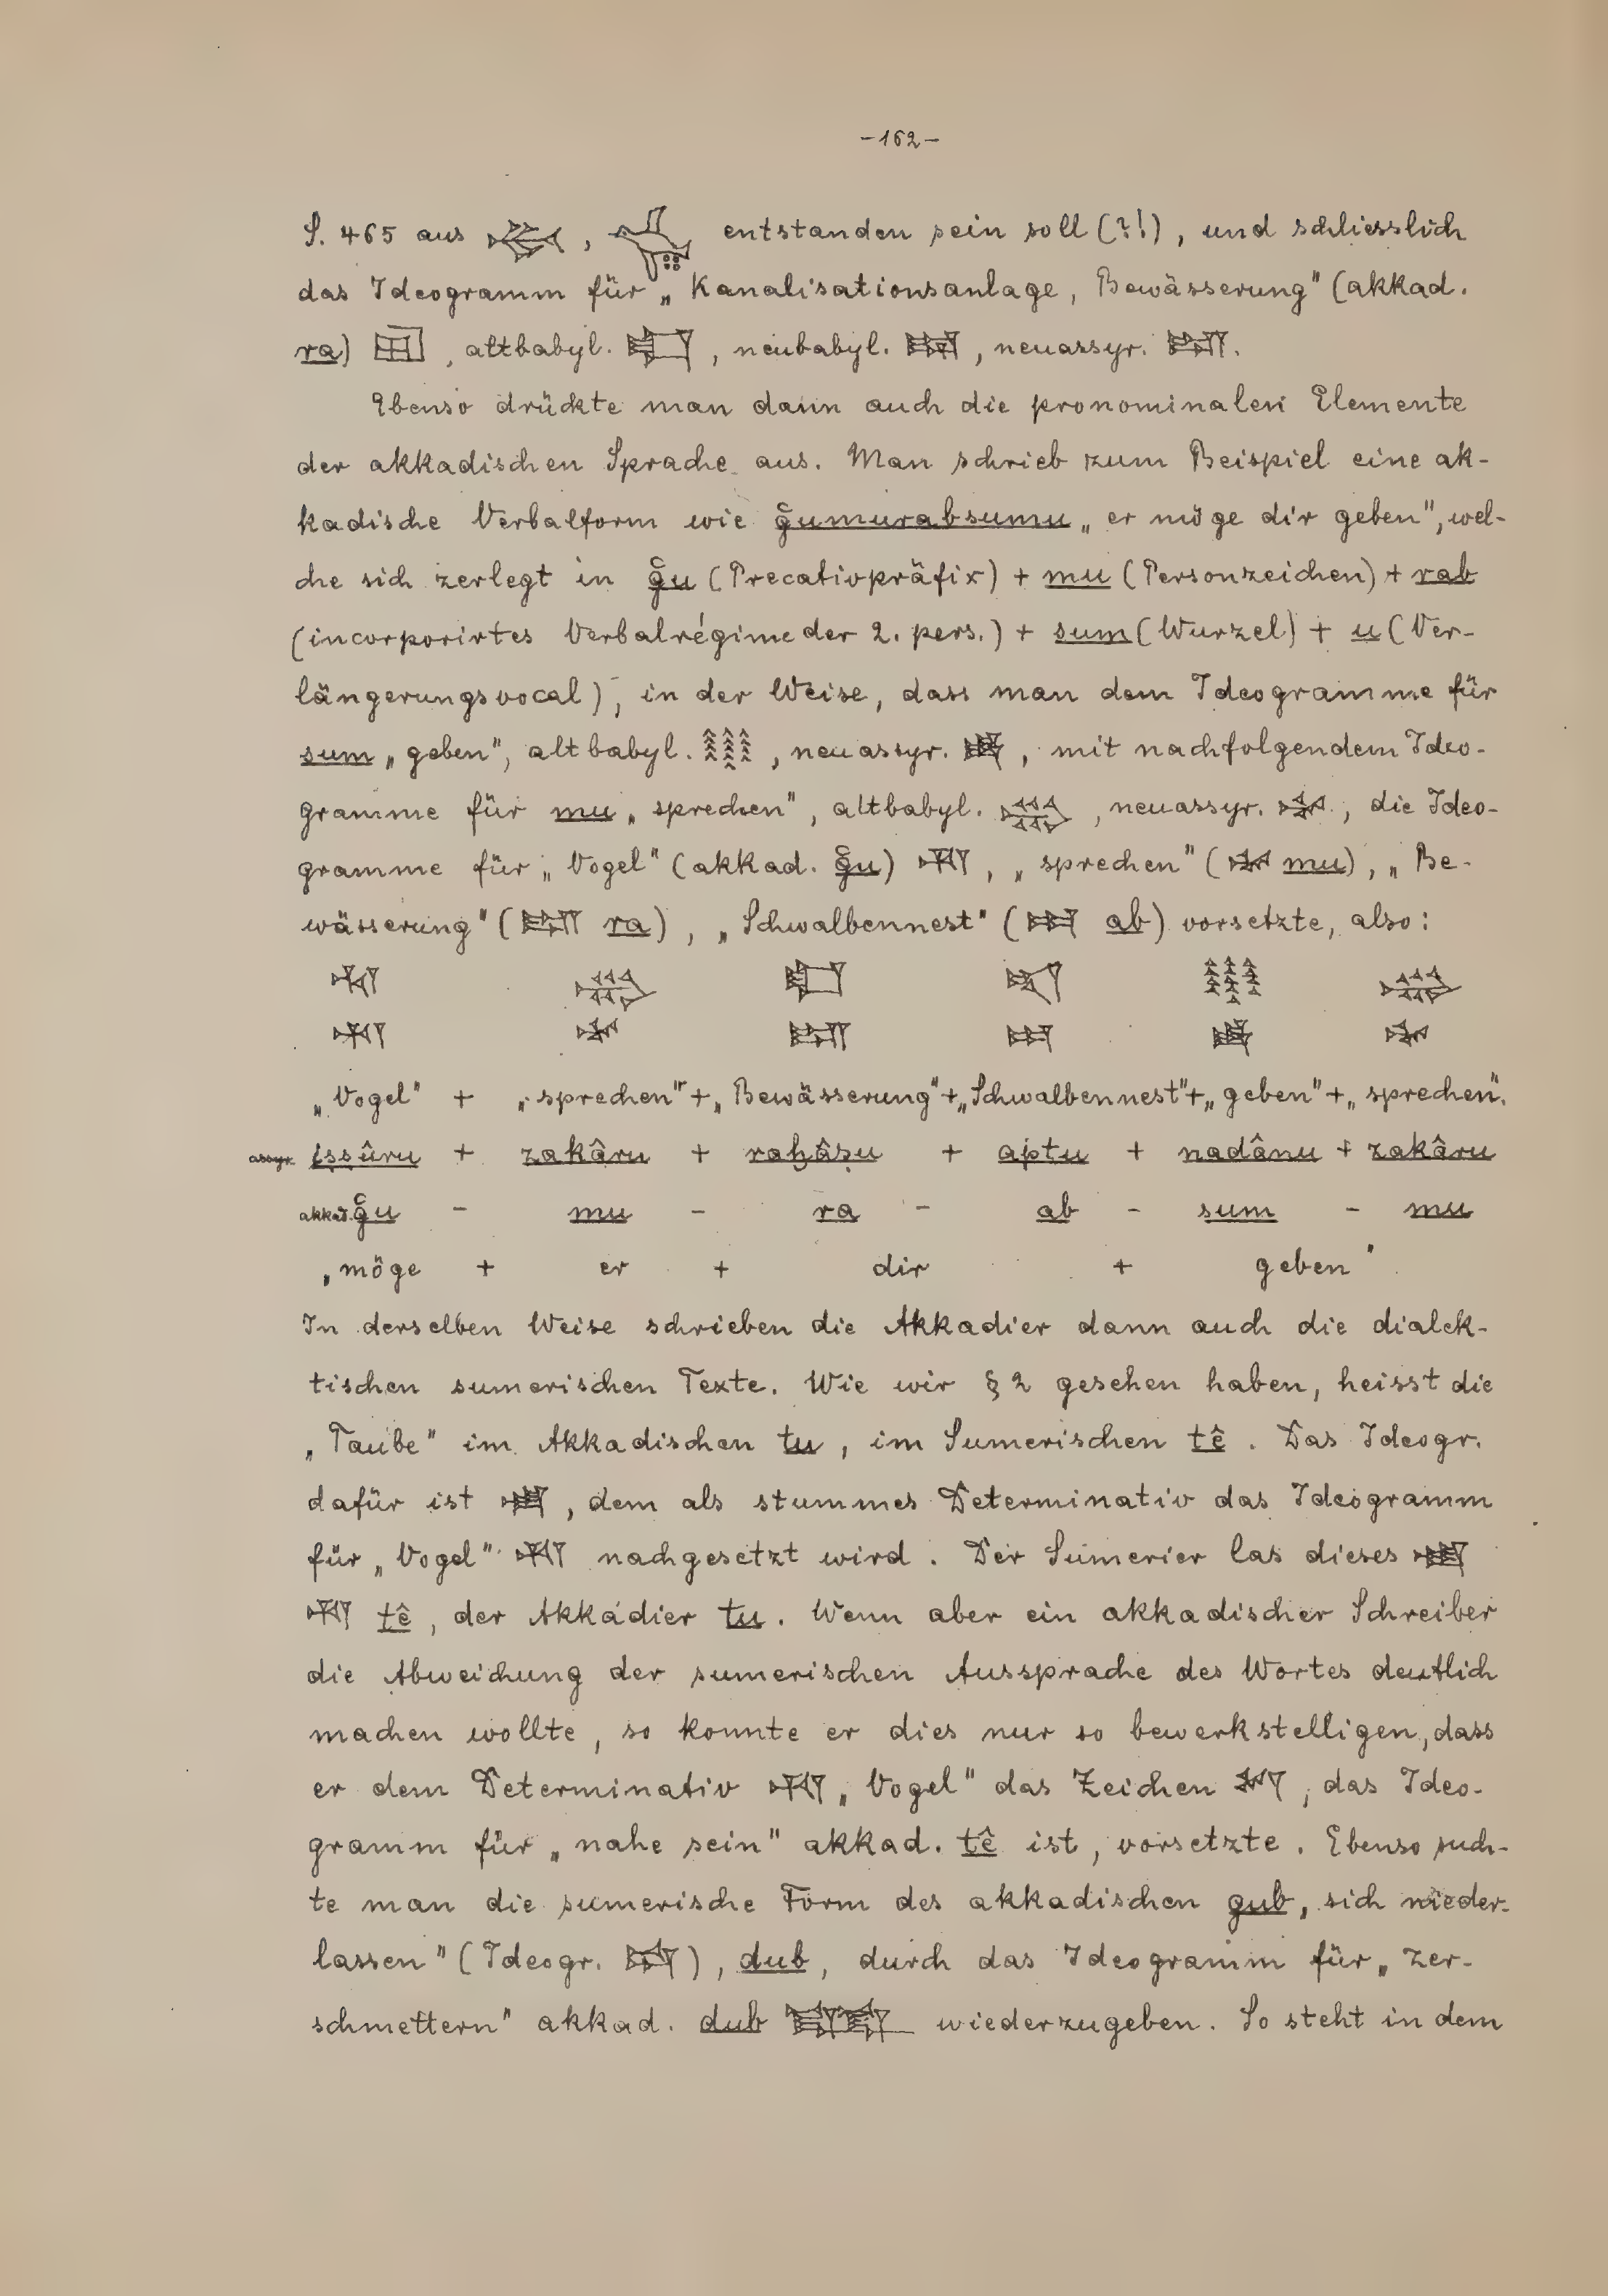 -162-
S. 465 aus , entstanden sein soll (?!), und schliesslich
das Ideogramm für „Kanalisationsanlage, Bewässerung" (akkad.
ra) , altbabyl. , neubabyl. , neuassyr. .
Ebenso drückte man dann auch die pronominalen Elemente
der akkadischen Sprache aus. Man schrieb zum Beispiel eine ak-
kadische Verbalform wie g̃umurabsumu „er möge dir geben", wel-
che sich zerlegt in g̃u (Precativpräfix) + mu (Personzeichen) + rab
(incorporirtes Verbalrégime der 2. pers.) + sum (Wurzel) + u (Ver-
längerungsvocal), in der Weise, dass man dem Ideogramme für
sum „geben", altbabyl. , neuassyr. , mit nachfolgendem Ideo-
gramme für mu „sprechen", altbabyl. , neuassyr. , die Ideo-
gramme für „Vogel" (akkad. g̃u) , „sprechen" ( mu), „Be-
wässerung" ( ra), „Schwalbennest" ( ab) vorsetzte, also:
„Vogel" + „sprechen" + „Bewässerung" + „Schwalbennest" + „geben" + „sprechen".
assyr. iṣṣûru + zakâru + raḫâṣu + aptu + nadânu + zakâru
akkad. g̃u - mu - ra - ab - sum - mu
„möge + er + dir + geben"
In derselben Weise schrieben die Akkadier dann auch die dialek-
tischen sumerischen Texte. Wie wir § 2 gesehen haben, heisst die
„Taube" im Akkadischen tu, im Sumerischen tê. Das Ideogr.
dafür ist , dem als stummes Determinativ das Ideogramm
für „Vogel" nachgesetzt wird. Der Sumerier las dieses
tê, der Akkadier tu. Wenn aber ein akkadischer Schreiber
die Abweichung der sumerischen Aussprache des Wortes deutlich
machen wollte, so konnte er dies nur so bewerkstelligen, dass
er dem Determinativ „Vogel" das Zeichen , das Ideo-
gramm für „nahe sein" akkad. tê ist, vorsetzte. Ebenso such-
te man die sumerische Form des akkadischen gub, sich nieder-
lassen" (Ideogr. ), dub, durch das Ideogramm für „zer-
schmettern" akkad. dub wiederzugeben. So steht in dem